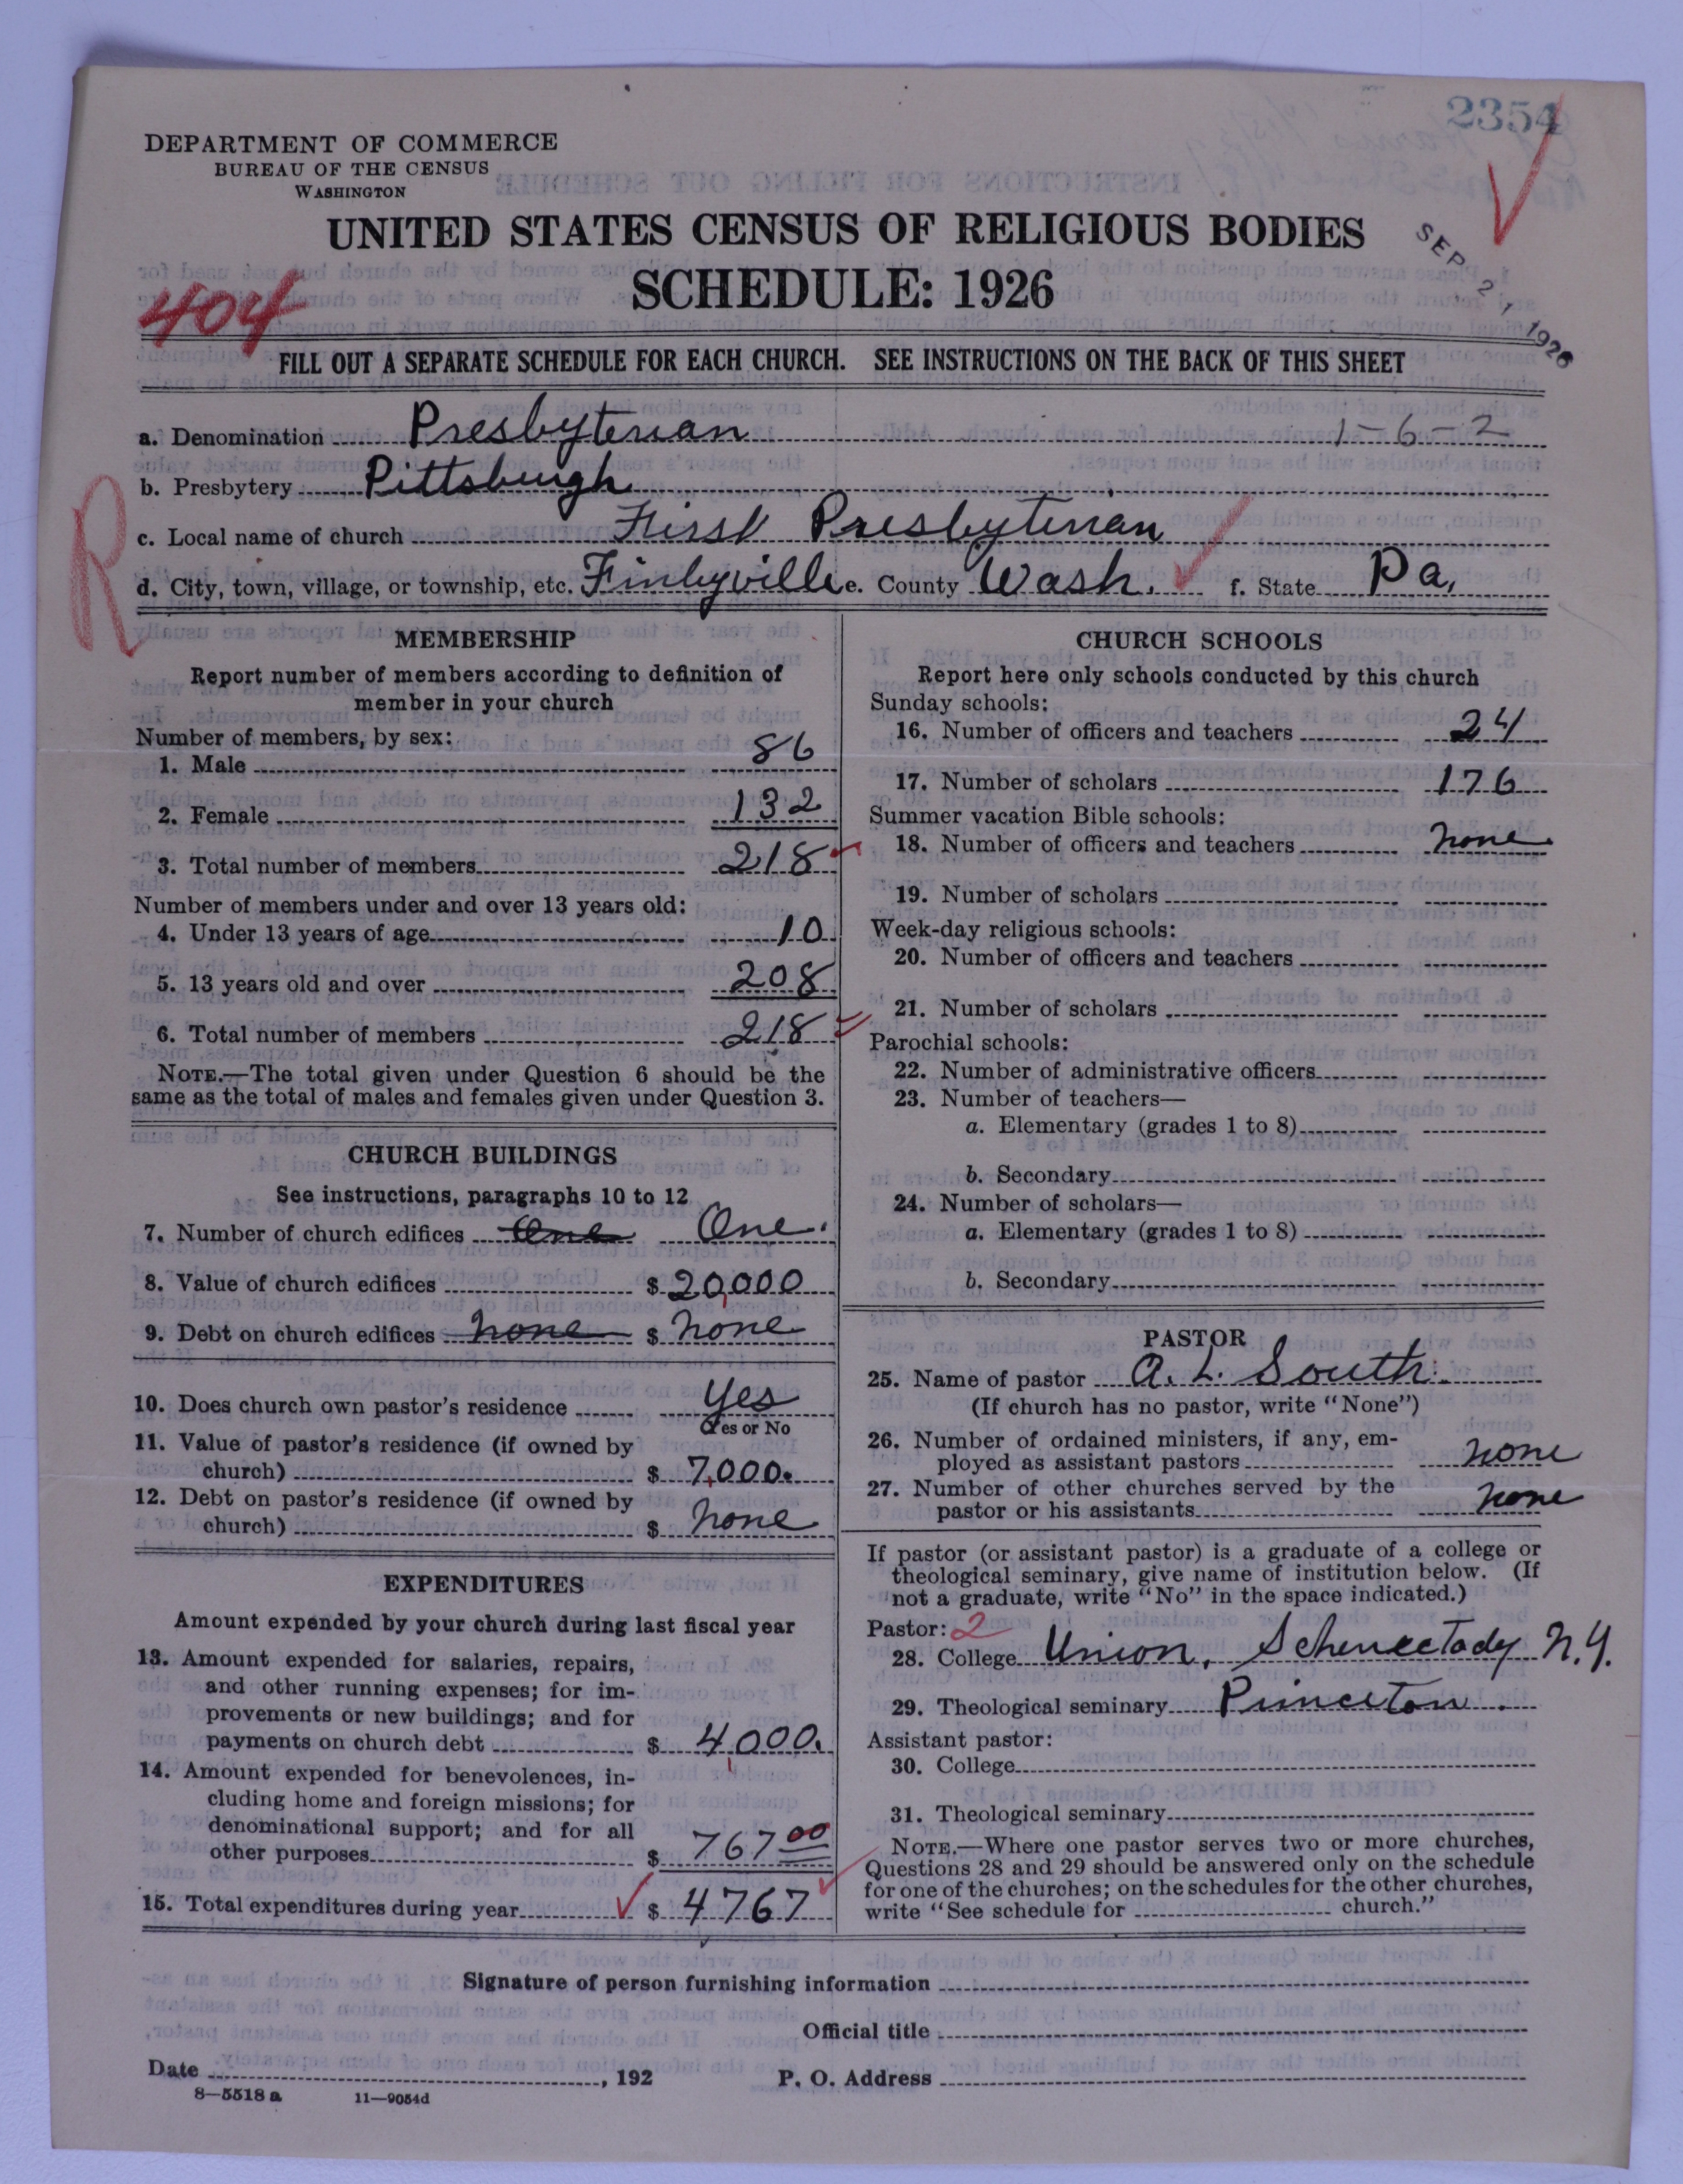 2354
DEPARTMENT OF COMMERCE
BUREAU OF THE CENSUS
WASHINGTON
UNITED STATES CENSUS OF RELIGIOUS BODIES
SEP 21 1926
SCHEDULE: 1926
404
FILL OUT A SEPARATE SCHEDULE FOR EACH CHURCH. SEE INSTRUCTIONS ON THE BACK OF THIS SHEET
a. Denomination Presbyterian 1-6-2
b. Presbytery Pittsburgh
R
c. Local name of church First Presbyterian
d. City, town, village, or township, etc. Finleyville e. County Wash. f. State Pa,
MEMBERSHIP
Report number of members according to definition of
member in your church
Number of members, by sex:
1. Male 86
2. Female 132
3. Total number of members 218
Number of members under and over 13 years old:
4. Under 13 years of age 10
5. 13 years old and over 208
6. Total number of members 218
NOTE.—The total given under Question 6 should be the
same as the total of males and females given under Question 3.
CHURCH BUILDINGS
See instructions, paragraphs 10 to 12
7. Number of church edifices One One.
8. Value of church edifices $ 20,000
9. Debt on church edifices none $ none
10. Does church own pastor's residence Yes
Yes or No
11. Value of pastor's residence (if owned by
church) $ 7,000.
12. Debt on pastor's residence (if owned by
church) $ none
EXPENDITURES
Amount expended by your church during last fiscal year
13. Amount expended for salaries, repairs,
and other running expenses; for im-
provements or new buildings; and for
payments on church debt $ 4,000.
14. Amount expended for benevolences, in-
cluding home and foreign missions; for
denominational support; and for all
other purposes $ 767 00
15. Total expenditures during year $ 4767
CHURCH SCHOOLS
Report here only schools conducted by this church
Sunday schools:
16. Number of officers and teachers 24
17. Number of scholars 176
Summer vacation Bible schools:
18. Number of officers and teachers none
19. Number of scholars
Week-day religious schools:
20. Number of officers and teachers
21. Number of scholars
Parochial schools:
22. Number of administrative officers
23. Number of teachers—
a. Elementary (grades 1 to 8)
b. Secondary
24. Number of scholars—
a. Elementary (grades 1 to 8)
b. Secondary
PASTOR
25. Name of pastor A. L. South.
(If church has no pastor, write "None")
26. Number of ordained ministers, if any, em-
ployed as assistant pastors none
27. Number of other churches served by the
pastor or his assistants none
If pastor (or assistant pastor) is a graduate of a college or
theological seminary, give name of institution below. (If
not a graduate, write "No" in the space indicated.)
Pastor: 2
28. College Union, Schenectady N.Y.
29. Theological seminary Princeton.
Assistant pastor:
30. College
31. Theological seminary
NOTE.—Where one pastor serves two or more churches,
Questions 28 and 29 should be answered only on the schedule
for one of the churches; on the schedules for the other churches,
write "See schedule for church."
Signature of person furnishing information
Official title
Date , 192 P. O. Address
8—5518 a 11—9054d